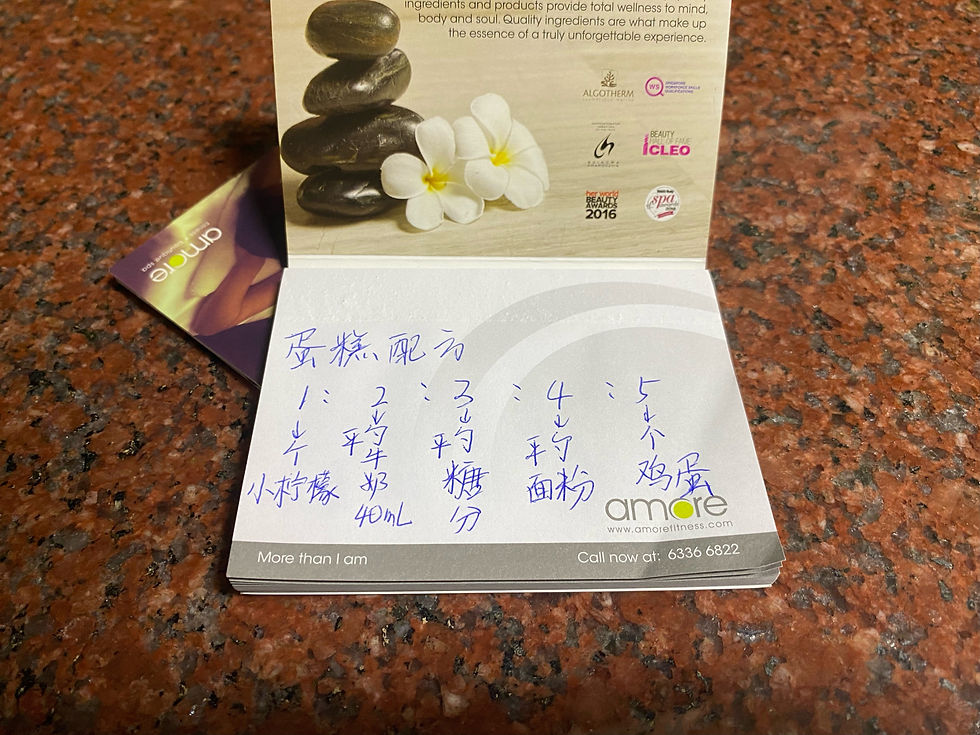 ingredients and products provide total wellness to mind,
body and soul. Quality ingredients are what make up
the essence of a truly unforgettable experience.
ALGOTHERM
WSQ
SINGAPORE
WORKFORCE SKILLS
QUALIFICATIONS
BEAUTY
HALL OF FAME
CLEO
her world
BEAUTY
AWARDS
2016
spa
amore
boutique spa
蛋糕配方
1 : 2 : 3 : 4 : 5
↓ ↓ ↓ ↓ ↓
个 平勺 平勺 平勺 个
小柠檬 牛奶 糖分 面粉 鸡蛋
40mL
amore
www.amorefitness.com
More than I am
Call now at: 6336 6822